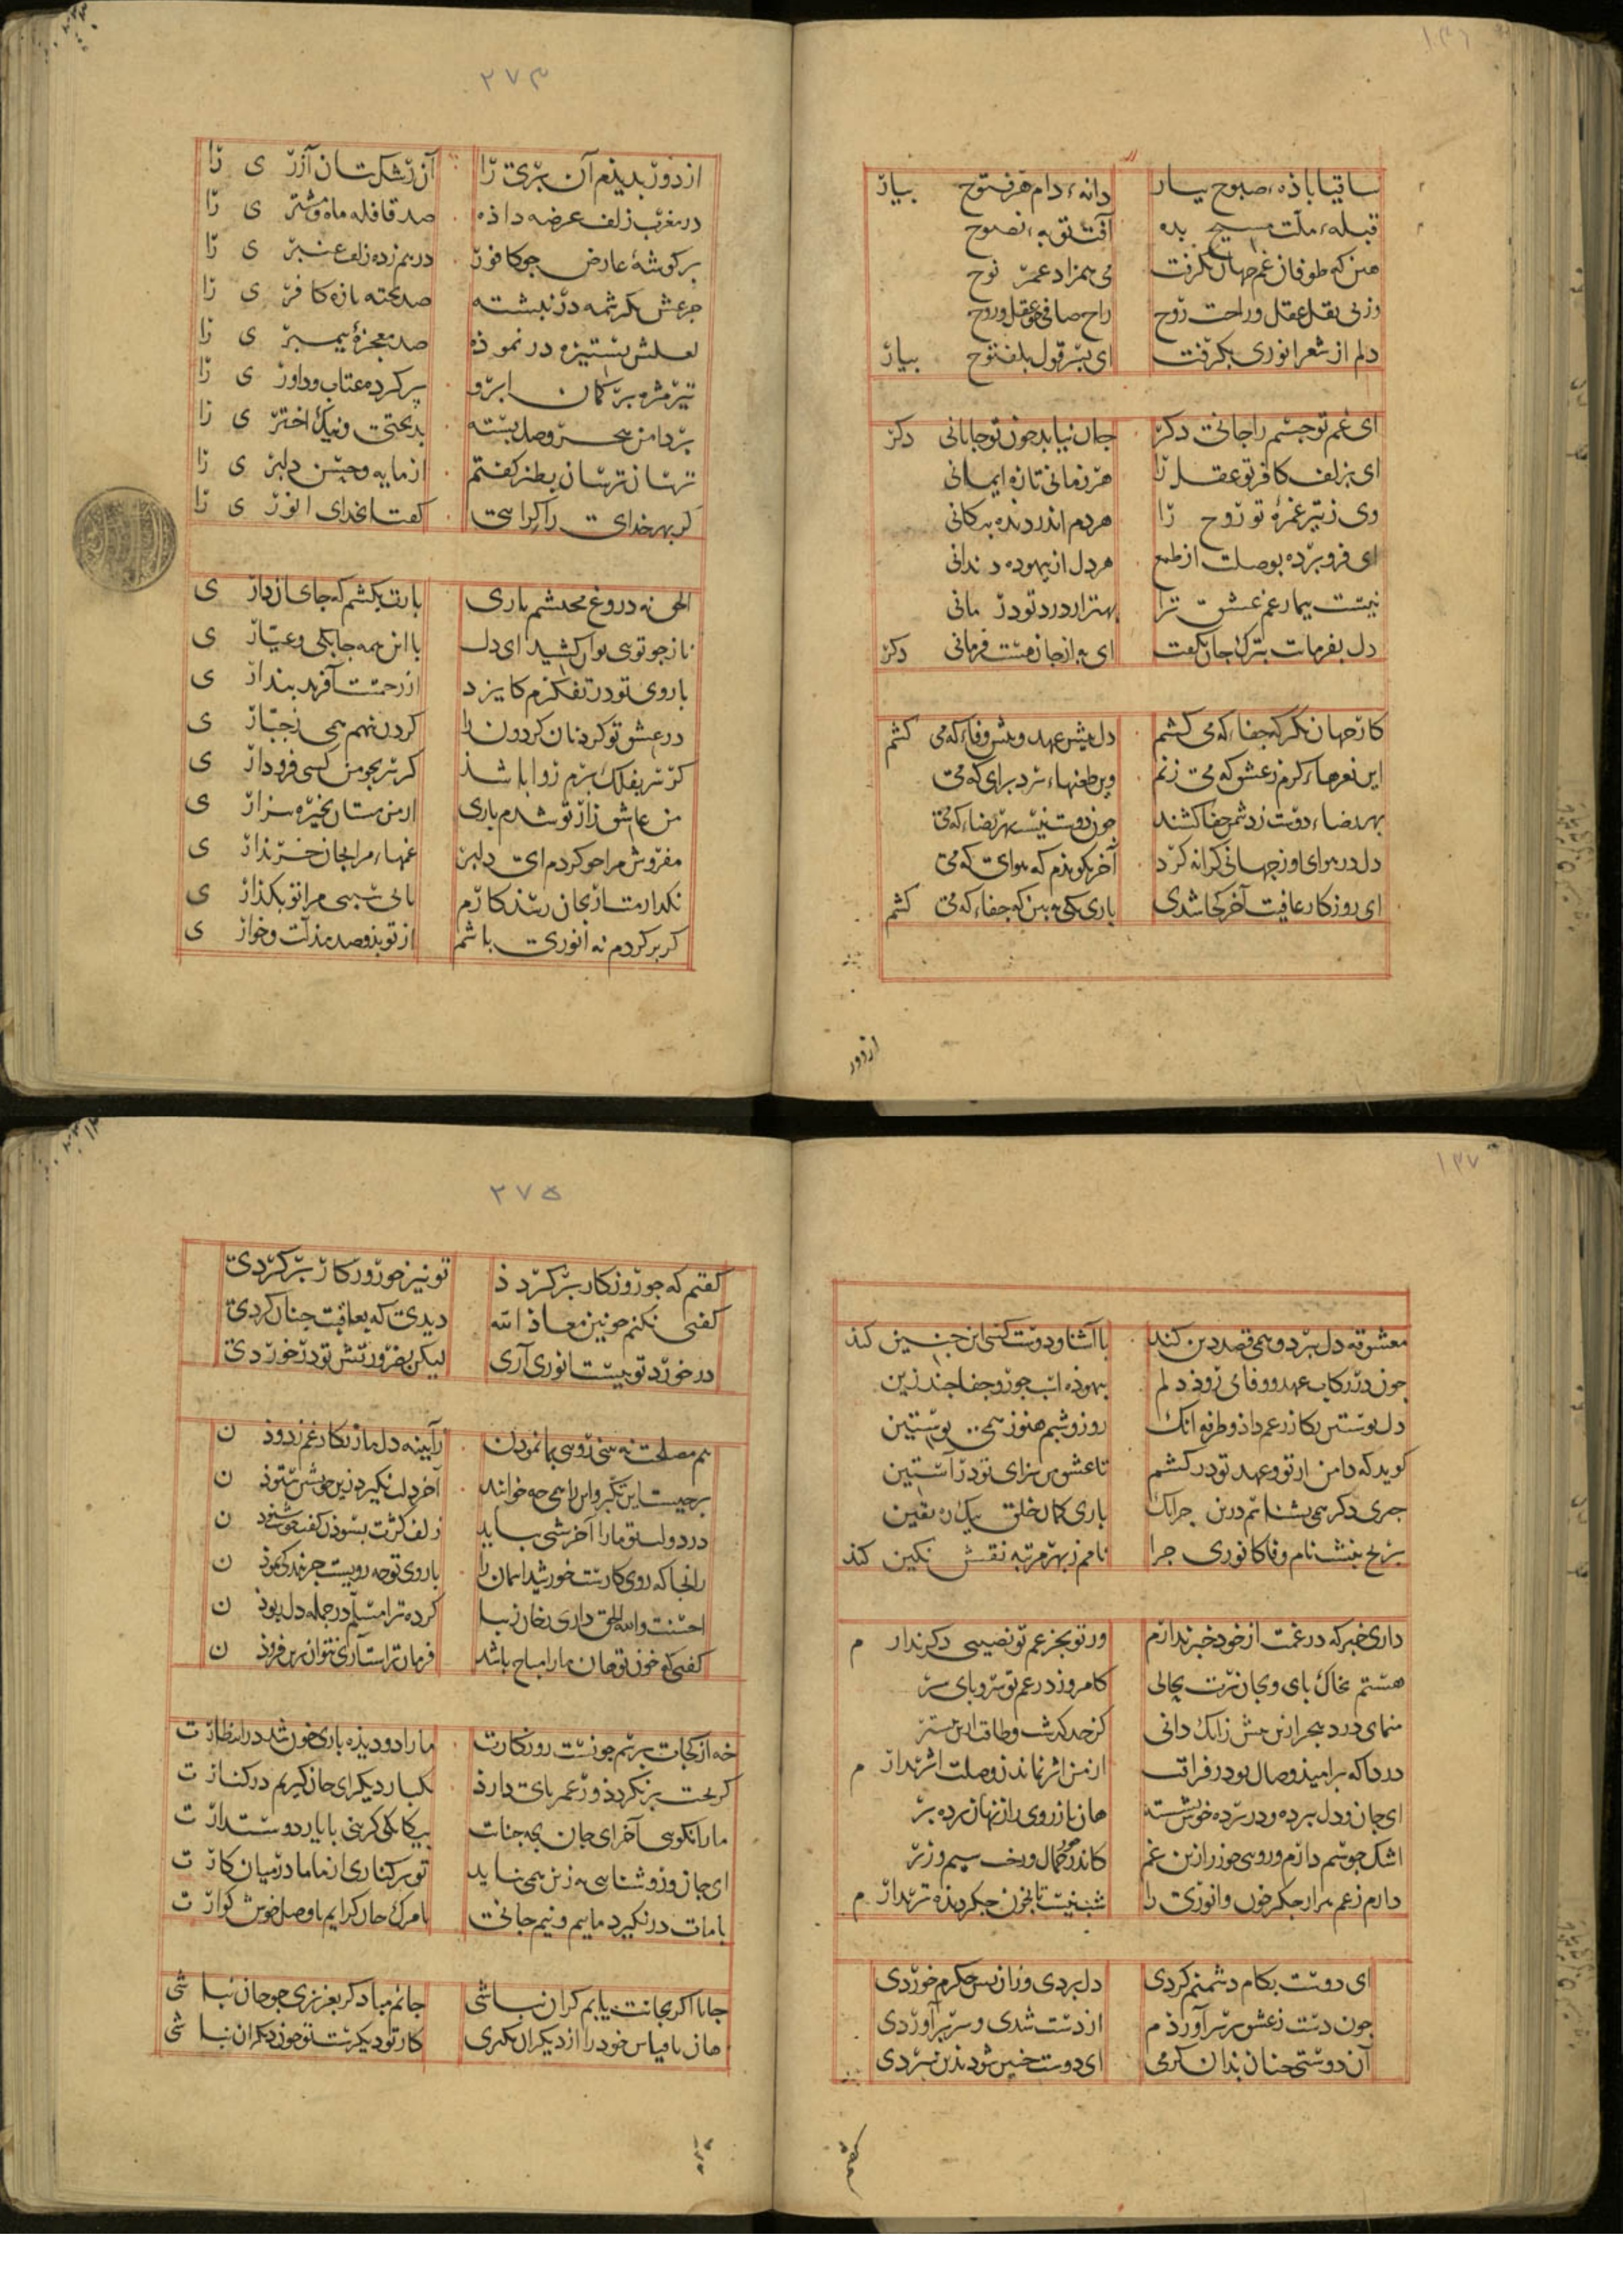 ۱۳۶
ساقیا باذهٔ صبوح بیار دانهٔ دام هر فتوح بیار
قبلهٔ ملّت مسیح بده آفت توبهٔ نصوح
هین که طوفان غم جهان بگرفت می همزاد عمر نوح
وز پی نقل عقل و راحت روح راح صافی چو عقل و روح
دلم از شعر انوری بگرفت ای پسر قول بلفتوح بیار
ای غم تو جسم را جانی دکر جان نیابد چون تو جانانی دکر
ای بزلف کافر تو عقل را هر زمانی تازه ایمانی
وی ز تیر غمزهٔ تو روح را هر دم اندر دیده پیکانی
ای فرو برده بوصلت از طمع هر دل از بیهوده دندانی
نیست بیمار غم عشق ترا بهتر از درد تو درمانی
دل بفرمانت بترک جان بگفت ای به از جان هست فرمانی دکر
کار جهان نکر که جفاء که می کشم دل پیش عهد و پیش وفاء که می کشم
این نعرهاء گرم ز عشق که می زنم وین طعنهاء سرد برای که می
بهر رضاء دوست ز دشمن جفا کشند چون دوست نیست بهر رضاء که می
دل در هوای او ز جهانی کرانه کرد آخر نکویذم که هوای که می
ای روزکار عافیت آخر کجا شدی باری یکی به بین که جفاء که می کشم
از دور
۲۷۳
از دور بدیذم آن پری را آن رشک بتان آزری را
در مغرب زلف عرضه داذه صد قافله ماه و مشتری را
بر کوشهٔ عارض چو کافور درهم زده زلف عنبری را
جزعش بکرشمه در نبشته صد تخته تازه کافری را
لعلش بستیزه در نموذه صد معجزهٔ پیمبری را
تیر مژه بر کمان ابرو پر کرده عتاب و داوری را
بر دامن هجر و وصل بسته بدبختی و نیک اختری را
ترسان ترسان بطنز کفتم از مایه و حسن دلبری را
کز بهر خدای را کرایی کفتا بخدای انوری را
الحق نه دروغ محتشم یاری بارت بکشم که جای آزاری
ناز چو توی توان کشید ای دل با این همه چابکی و عیّاری
با روی تو در تفکرم کایزد از رحمت آفرید پنداری
در عشق تو کردنان کردون را کردن ننهم همی ز جبّاری
کر سر بفلک برم روا باشذ کر سر بچو من کسی فرو داری
من عاشق زار تو شدم باری از من مستان بخیره بیزاری
مفروش مرا چو کردم ای دلبر غمهاء مرا بجان خریذاری
نکذارمت ار بجان رسذ کارم تا بی سببی مرا تو بکذاری
کر بر کردم نه انوری باشم از تو بذو صد مذلّت و خواری
۱۳۷
معشوقه دل ببرد و همی قصد دین کند با آشنا و دوست کسی این چنین کند
چون در رکاب عهد و وفا می روذ دلم بیهوذه اسب جور و جفا چند زین
دل پوستین بکازر غم داذ و طرفه آنک روز و شبم هنوز همی پوستین
کوید که دامن از تو و عهد تو در کشم تا عشق من سزای تو در آستین
جزوی دکر همی بشناسم درین جز آنک باری کمان خلق یک ره یقین
بر یخ نبشت نام وفا کانوری چرا نامم ز بهر مرتبه نقش نکین کند
داری خبر که در غمت از خود خبر ندارم وز تو بجز غم تو نصیبی دکر ندارم
هستم بخاک پای و بجان و سرت بحالی کامروز در غم تو سر و پای سر
منمای درد هجر ازین بیش زانک دانی کز حد گذشت و طاقت ازین بیشتر
دردا که بر امیذ وصال تو در فراقت از من اثر نماند و ز وصلت اثر ندارم
ای جان و دل ببرده و در پرده خوش نشسته هان باز روی راز نهان پرده بر
اشک چو سیم دارم و روی چو زر ازین غم کاندر کمال و رخ سیم و زر
دارم ز غم هزار جکر خون و انوری را شب نیست تا بخون جکر دیذه تر ندارم
ای دوست بکام دشمنم کردی دل بردی و زان پس جکرم خوردی
چون دست ز عشق بر سر آورذم از دست شدی و سر برآوردی
آن دوستی چنان بذان کرمی ای دوست چنین شود بذین سردی
کفتم
۲۷۵
کفتم که چو روزکار برکرذذ تو نیز چو روزکار برکردی
کفتی نکنم چونین معاذ الله دیدی که بعاقبت چنان کردی
در خورد تو نیست انوری آری لیکن بضرورتش تو در خوردی
هم مصلحت نه بینی روی بما نموذن ز آیینه دل ما زنکار غم زدوذن
بر چیست این تکبّر و این را همی چه خوانند آخر دلت نکیرد زین خویشتن ستوذن
در دولت تو ما را آخر شبی بباید زلف کژت بسوذن کفت خوشت شنودن
زانجا که روی کارست خورشید آسمان را با روی تو چه رویست جز بندکی نموذن
احسنت والله الحق داری رخان زیبا کرده ترا مسلّم در جمله دل ربوذن
کفتی که خون تو جان ما را مباح باشد فرمان تراست آری نتوان برین فزوذن
خه از کجات پرسم چونست روزکارت ما را دو دیذه باری خون شد در انتظارت
کر بخت برنکردذ ور عمر پای دارذ یکبار دیکر ای جان کیریم در کنارت
ما را نکویی آخر ای جان بچه جنات بیکانکی کزینی با یار دوستدارت
ای جان و روشنایی به زین همی بباید تو بر کناری از ما ما در میان کارت
با مات در نکیرد ماییم و نیم جانی یا مرک جان کزایم یا وصل خوش کوارت
جانا اکر بجانت یابم کران نباشی جانم مباد کر بعزیزی چو جان نباشی
هان تا قیاس خود را از دیکران نکیری کار تو دیکرست تو چون دیکران نباشی